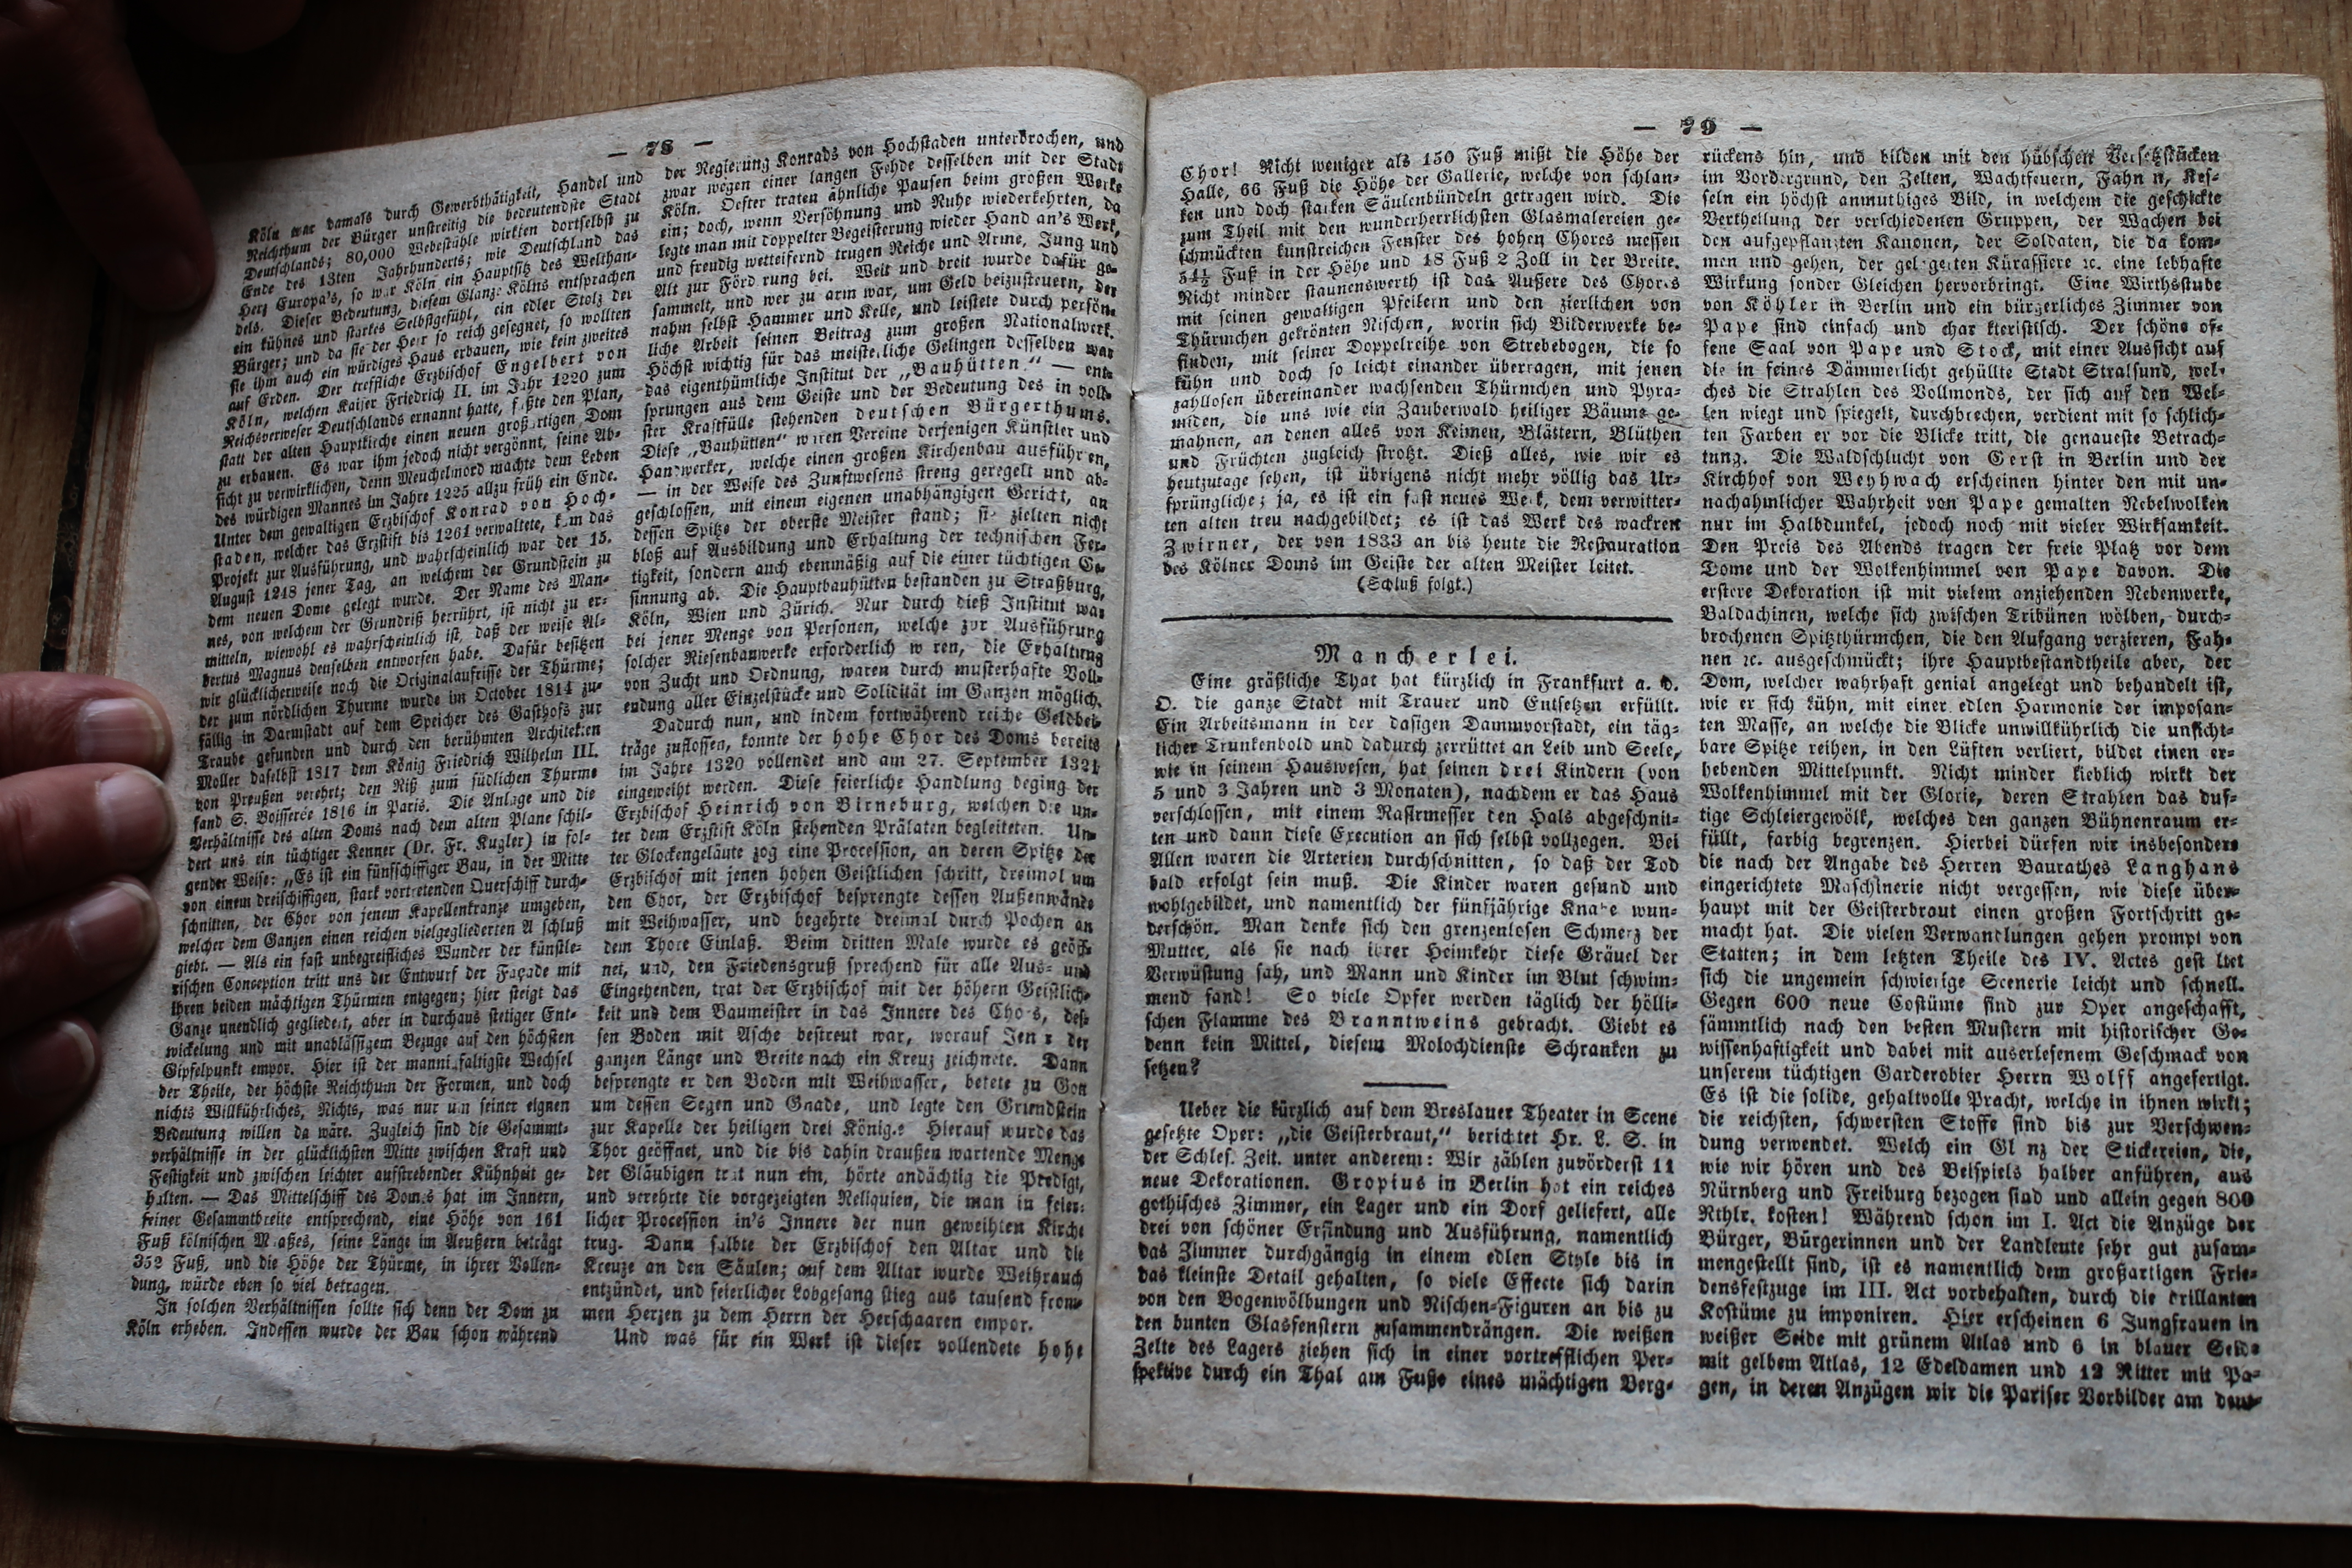 — 78 —
Köln war damals durch Gewerbthätigkeit, Handel und
Reichthum der Bürger unstreitig die bedeutendste Stadt
Deutschlands; 80,000 Webestühle wirkten dortselbst zu
Ende des 13ten Jahrhunderts; wie Deutschland das
Herz Europa's, so war Köln ein Hauptsitz des Welthan-
dels. Dieser Bedeutung, diesem Glanze Kölns entsprachen
ein kühnes und starkes Selbstgefühl, ein edler Stolz der
Bürger; und da sie der Herr so reich gesegnet, so wollten
sie ihm auch ein würdiges Haus erbauen, wie kein zweites
auf Erden. Der treffliche Erzbischof Engelbert von
Köln, welchen Kaiser Friedrich II. im Jahr 1220 zum
Reichsverweser Deutschlands ernannt hatte, faßte den Plan,
statt der alten Hauptkirche einen neuen großartigen Dom
zu erbauen. Es war ihm jedoch nicht vergönnt, seine Ab-
sicht zu verwirklichen, denn Meuchelmord machte dem Leben
des würdigen Mannes im Jahre 1225 allzu früh ein Ende.
Unter dem gewaltigen Erzbischof Konrad von Hoch-
staden, welcher das Erzstift bis 1261 verwaltete, kam das
Projekt zur Ausführung, und wahrscheinlich war der 15.
August 1248 jener Tag, an welchem der Grundstein zu
dem neuen Dome gelegt wurde. Der Name des Man-
nes, von welchem der Grundriß herrührt, ist nicht zu er-
mitteln, wiewohl es wahrscheinlich ist, daß der weise Al-
bertus Magnus denselben entworfen habe. Dafür besitzen
wir glücklicherweise noch die Originalaufrisse der Thürme;
der zum nördlichen Thurme wurde im October 1814 zu-
fällig in Darmstadt auf dem Speicher des Gasthofs zur
Traube gefunden und durch den berühmten Architekten
Moller daselbst 1817 dem König Friedrich Wilhelm III.
von Preußen verehrt; den Riß zum südlichen Thurme
fand S. Boisserée 1816 in Paris. Die Anlage und die
Verhältnisse des alten Doms nach dem alten Plane schil-
dert uns ein tüchtiger Kenner (Dr. Fr. Kugler) in fol-
gender Weise: „Es ist ein fünfschiffiger Bau, in der Mitte
von einem dreischiffigen, stark vortretenden Querschiff durch-
schnitten, der Chor von jenem Kapellenkranze umgeben,
welcher dem Ganzen einen reichen vielgegliederten A schluß
giebt. — Als ein fast unbegreifliches Wunder der künstle-
rischen Conception tritt uns der Entwurf der Façade mit
ihren beiden mächtigen Thürmen entgegen; hier steigt das
Ganze unendlich gegliedert, aber in durchaus stetiger Ent-
wickelung und mit unablässigem Bezuge auf den höchsten
Gipfelpunkt empor. Hier ist der mannigfaltigste Wechsel
der Theile, der höchste Reichthum der Formen, und doch
nichts Willkührliches, Nichts, was nur um seiner eignen
Bedeutung willen da wäre. Zugleich sind die Gesammt-
verhältnisse in der glücklichsten Mitte zwischen Kraft und
Festigkeit und zwischen leichter aufstrebender Kühnheit ge-
halten. — Das Mittelschiff des Domes hat im Innern,
seiner Gesammtbreite entsprechend, eine Höhe von 161
Fuß kölnischen Maßes, seine Länge im Aeußern beträgt
352 Fuß, und die Höhe der Thürme, in ihrer Vollen-
dung, würde eben so viel betragen.
In solchen Verhältnissen sollte sich denn der Dom zu
Köln erheben. Indessen wurde der Bau schon während
der Regierung Konrads von Hochstaden unterbrochen, und
zwar wegen einer langen Fehde desselben mit der Stadt
Köln. Oefter traten ähnliche Pausen beim großen Werke
ein; doch, wenn Versöhnung und Ruhe wiederkehrten, da
legte man mit doppelter Begeisterung wieder Hand an's Werk,
und freudig wetteifernd trugen Reiche und Arme, Jung und
Alt zur Förd rung bei. Weit und breit wurde dafür ge-
sammelt, und wer zu arm war, um Geld beizusteuern, der
nahm selbst Hammer und Kelle, und leistete durch persön-
liche Arbeit seinen Beitrag zum großen Nationalwerk.
Höchst wichtig für das meisterliche Gelingen desselben war
das eigenthümliche Institut der „Bauhütten" — ent-
sprungen aus dem Geiste und der Bedeutung des in voll-
ster Kraftfülle stehenden deutschen Bürgerthums.
Diese „Bauhütten" waren Vereine derjenigen Künstler und
Handwerker, welche einen großen Kirchenbau ausführen,
— in der Weise des Zunftwesens streng geregelt und ab-
geschlossen, mit einem eigenen unabhängigen Gericht, an
dessen Spitze der oberste Meister stand; sie zielten nicht
bloß auf Ausbildung und Erhaltung der technischen Fer-
tigkeit, sondern auch ebenmäßig auf die einer tüchtigen Ge-
sinnung ab. Die Hauptbauhütten bestanden zu Straßburg,
Köln, Wien und Zürich. Nur durch dieß Institut war
bei jener Menge von Personen, welche zur Ausführung
solcher Riesenbauwerke erforderlich w ren, die Erhaltung
von Zucht und Ordnung, waren durch musterhafte Voll-
endung aller Einzelstücke und Solidität im Ganzen möglich.
Dadurch nun, und indem fortwährend reiche Geldbei-
träge zuflossen, konnte der hohe Chor des Doms bereits
im Jahre 1320 vollendet und am 27. September 1321
eingeweiht werden. Diese feierliche Handlung beging der
Erzbischof Heinrich von Birneburg, welchen die un-
ter dem Erzstift Köln stehenden Prälaten begleiteten. Un-
ter Glockengeläute zog eine Procession, an deren Spitze der
Erzbischof mit jenen hohen Geistlichen schritt, dreimal um
den Chor, der Erzbischof besprengte dessen Außenwände
mit Weihwasser, und begehrte dreimal durch Pochen an
dem Thore Einlaß. Beim dritten Male wurde es geöff-
net, und, den Friedensgruß sprechend für alle Aus- und
Eingehenden, trat der Erzbischof mit der höhern Geistlich-
keit und dem Baumeister in das Innere des Chors, des-
sen Boden mit Asche bestreut war, worauf Jener der
ganzen Länge und Breite nach ein Kreuz zeichnete. Dann
besprengte er den Boden mit Weihwasser, betete zu Gott
um dessen Segen und Gnade, und legte den Grundstein
zur Kapelle der heiligen drei Könige. Hierauf wurde das
Thor geöffnet, und die bis dahin draußen wartende Menge
der Gläubigen trat nun ein, hörte andächtig die Predigt,
und verehrte die vorgezeigten Reliquien, die man in feier-
licher Procession in's Innere der nun geweihten Kirche
trug. Dann salbte der Erzbischof den Altar und die
Kreuze an den Säulen; auf dem Altar wurde Weihrauch
entzündet, und feierlicher Lobgesang stieg aus tausend from-
men Herzen zu dem Herrn der Herschaaren empor.
Und was für ein Werk ist dieser vollendete hohe
— 79 —
Chor! Nicht weniger als 150 Fuß mißt die Höhe der
Halle, 66 Fuß die Höhe der Gallerie, welche von schlan-
ken und doch starken Säulenbündeln getragen wird. Die
zum Theil mit den wunderherrlichsten Glasmalereien ge-
schmückten kunstreichen Fenster des hohen Chores messen
54½ Fuß in der Höhe und 18 Fuß 2 Zoll in der Breite.
Nicht minder staunenswerth ist das Äußere des Chores
mit seinen gewaltigen Pfeilern und den zierlichen von
Thürmchen gekrönten Nischen, worin sich Bilderwerke be-
finden, mit seiner Doppelreihe von Strebebogen, die so
kühn und doch so leicht einander überragen, mit jenen
zahllosen übereinander wachsenden Thürmchen und Pyra-
miden, die uns wie ein Zauberwald heiliger Bäume ge-
mahnen, an denen alles von Keimen, Blättern, Blüthen
und Früchten zugleich strotzt. Dieß alles, wie wir es
heutzutage sehen, ist übrigens nicht mehr völlig das Ur-
sprüngliche; ja, es ist ein fast neues Werk, dem verwitter-
ten alten treu nachgebildet; es ist das Werk des wackren
Zwirner, der von 1833 an bis heute die Restauration
des Kölner Doms im Geiste der alten Meister leitet.
(Schluß folgt.)
Mancherlei.
Eine gräßliche That hat kürzlich in Frankfurt a. d.
O. die ganze Stadt mit Trauer und Entsetzen erfüllt.
Ein Arbeitsmann in der dasigen Dammvorstadt, ein täg-
licher Trunkenbold und dadurch zerrüttet an Leib und Seele,
wie in seinem Hauswesen, hat seinen drei Kindern (von
5 und 3 Jahren und 3 Monaten), nachdem er das Haus
verschlossen, mit einem Rasirmesser den Hals abgeschnit-
ten und dann diese Execution an sich selbst vollzogen. Bei
Allen waren die Arterien durchschnitten, so daß der Tod
bald erfolgt sein muß. Die Kinder waren gesund und
wohlgebildet, und namentlich der fünfjährige Knabe wun-
derschön. Man denke sich den grenzenlosen Schmerz der
Mutter, als sie nach ihrer Heimkehr diese Gräuel der
Verwüstung sah, und Mann und Kinder im Blut schwim-
mend fand! So viele Opfer werden täglich der hölli-
schen Flamme des Branntweins gebracht. Giebt es
denn kein Mittel, diesem Molochdienste Schranken zu
setzen?
Ueber die kürzlich auf dem Breslauer Theater in Scene
gesetzte Oper: „die Geisterbraut," berichtet Hr. L. S. in
der Schles. Zeit. unter anderem: Wir zählen zuvörderst 11
neue Dekorationen. Gropius in Berlin hat ein reiches
gothisches Zimmer, ein Lager und ein Dorf geliefert, alle
drei von schöner Erfindung und Ausführung, namentlich
das Zimmer durchgängig in einem edlen Style bis in
das kleinste Detail gehalten, so viele Effecte sich darin
von den Bogenwölbungen und Nischen-Figuren an bis zu
den bunten Glasfenstern zusammendrängen. Die weißen
Zelte des Lagers ziehen sich in einer vortrefflichen Per-
spektive durch ein Thal am Fuße eines mächtigen Berg-
rückens hin, und bilden mit den hübschen Versetzstücken
im Vordergrund, den Zelten, Wachtfeuern, Fahn n, Kes-
seln ein höchst anmuthiges Bild, in welchem die geschickte
Vertheilung der verschiedenen Gruppen, der Wachen bei
den aufgepflanzten Kanonen, der Soldaten, die da kom-
men und gehen, der gelagerten Kürassiere ꝛc. eine lebhafte
Wirkung sonder Gleichen hervorbringt. Eine Wirthsstube
von Köhler in Berlin und ein bürgerliches Zimmer von
Pape sind einfach und char kteristisch. Der schöne of-
fene Saal von Pape und Stock, mit einer Aussicht auf
die in feines Dämmerlicht gehüllte Stadt Stralsund, wel-
ches die Strahlen des Vollmonds, der sich auf den Wel-
len wiegt und spiegelt, durchbrechen, verdient mit so schlich-
ten Farben er vor die Blicke tritt, die genaueste Betrach-
tung. Die Waldschlucht von Gerst in Berlin und der
Kirchhof von Weyhwach erscheinen hinter den mit un-
nachahmlicher Wahrheit von Pape gemalten Nebelwolken
nur im Halbdunkel, jedoch noch mit vieler Wirksamkeit.
Den Preis des Abends tragen der freie Platz vor dem
Dome und der Wolkenhimmel von Pape davon. Die
erstere Dekoration ist mit vielem anziehenden Nebenwerke,
Baldachinen, welche sich zwischen Tribünen wölben, durch-
brochenen Spitzthürmchen, die den Aufgang verzieren, Fah-
nen ꝛc. ausgeschmückt; ihre Hauptbestandtheile aber, der
Dom, welcher wahrhaft genial angelegt und behandelt ist,
wie er sich kühn, mit einer edlen Harmonie der imposan-
ten Masse, an welche die Blicke unwillkührlich die unsicht-
bare Spitze reihen, in den Lüften verliert, bildet einen er-
hebenden Mittelpunkt. Nicht minder lieblich wirkt der
Wolkenhimmel mit der Glorie, deren Strahlen das duf-
tige Schleiergewölk, welches den ganzen Bühnenraum er-
füllt, farbig begrenzen. Hierbei dürfen wir insbesondere
die nach der Angabe des Herren Baurathes Langhans
eingerichtete Maschinerie nicht vergessen, wie diese über-
haupt mit der Geisterbraut einen großen Fortschritt ge-
macht hat. Die vielen Verwandlungen gehen prompt von
Statten; in dem letzten Theile des IV. Actes gest ltet
sich die ungemein schwierige Scenerie leicht und schnell.
Gegen 600 neue Costüme sind zur Oper angeschafft,
sämmtlich nach den besten Mustern mit historischer Ge-
wissenhaftigkeit und dabei mit auserlesenem Geschmack von
unserem tüchtigen Garderobier Herrn Wolff angefertigt.
Es ist die solide, gehaltvolle Pracht, welche in ihnen wirkt;
die reichsten, schwersten Stoffe sind bis zur Verschwen-
dung verwendet. Welch ein Gl nz der Stickereien, die,
wie wir hören und des Beispiels halber anführen, aus
Nürnberg und Freiburg bezogen sind und allein gegen 800
Rthlr. kosten! Während schon im I. Act die Anzüge der
Bürger, Bürgerinnen und der Landleute sehr gut zusam-
mengestellt sind, ist es namentlich dem großartigen Frie-
densfestzuge im III. Act vorbehalten, durch die brillanten
Kostüme zu imponiren. Hier erscheinen 6 Jungfrauen in
weißer Seide mit grünem Atlas und 6 in blauer Seide
mit gelbem Atlas, 12 Edeldamen und 12 Ritter mit Pa-
gen, in deren Anzügen wir die Pariser Vorbilder am deut-